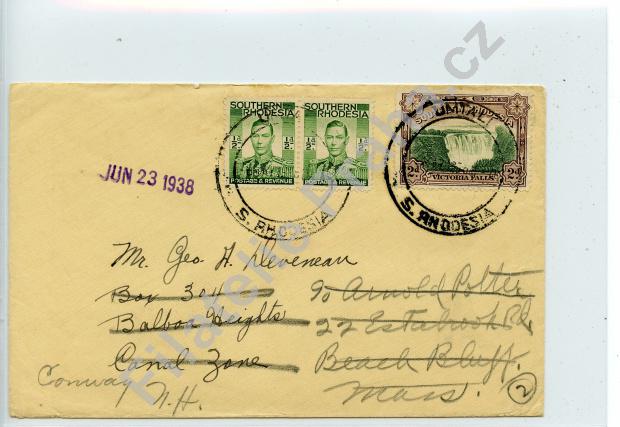 SOUTHERN RHODESIA
½d ½d
POSTAGE & REVENUE
SOUTHERN RHODESIA
½d ½d
POSTAGE & REVENUE
2d VICTORIA FALLS 2d
UMTALI
S. RHODESIA
S. RHODESIA
JUN 23 1938
Mr. Geo H. Deveneau
Box 304
Balboa Heights
Canal Zone
c/o Arnold Potter
22 Estabrook Rd.
Beach Bluff.
Mass.
Conway
N.H.
2
Filatelie Praha.cz